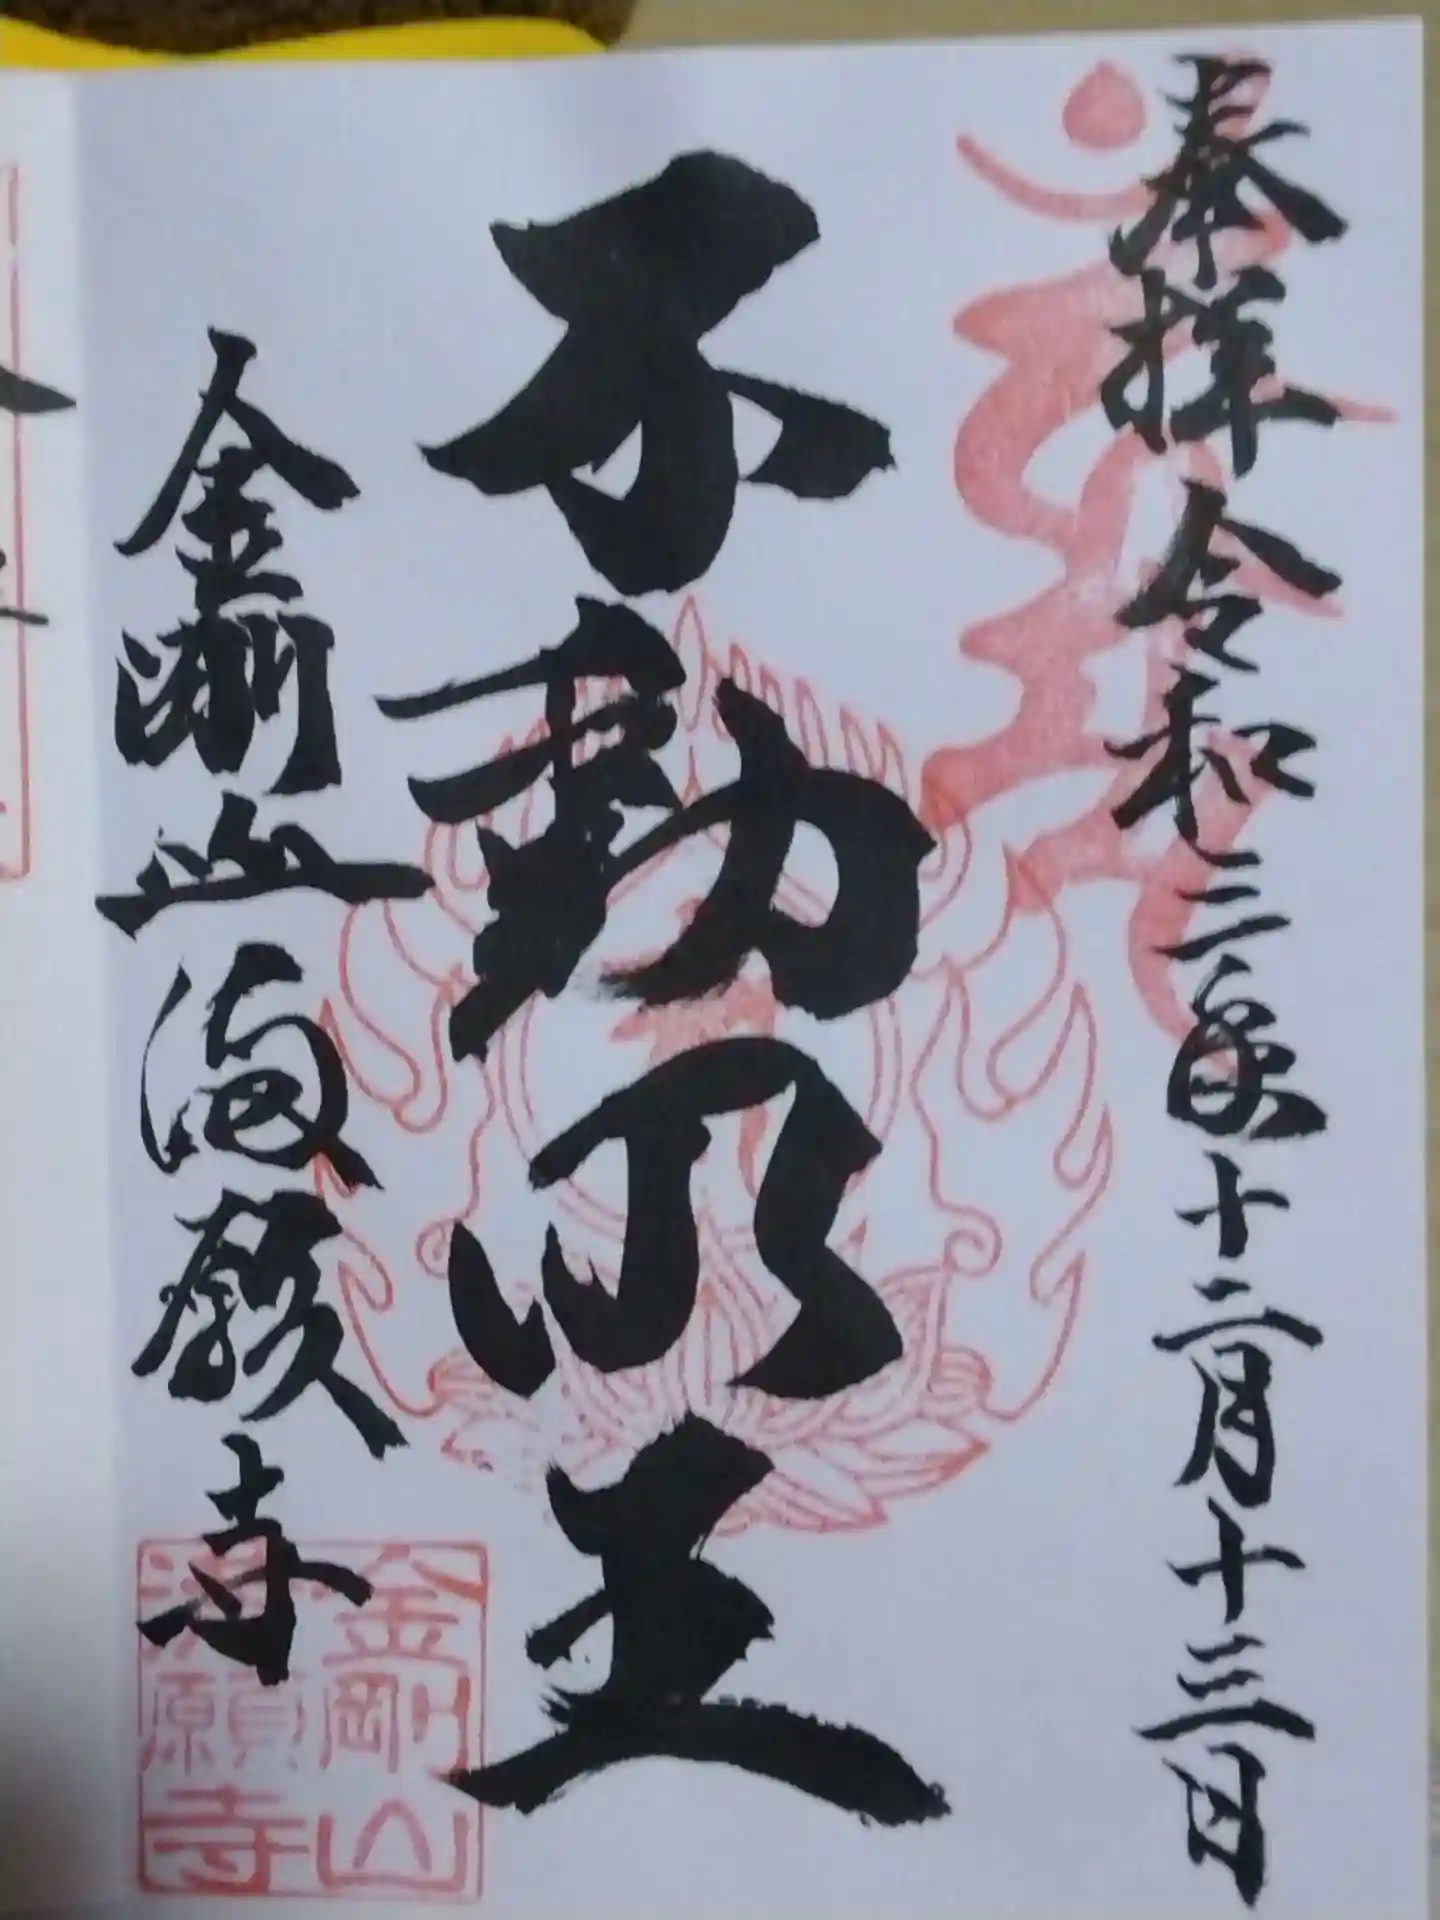 奉拝 令和三年十二月十三日
不動明王
金剛山 満願寺
金剛山
満願寺